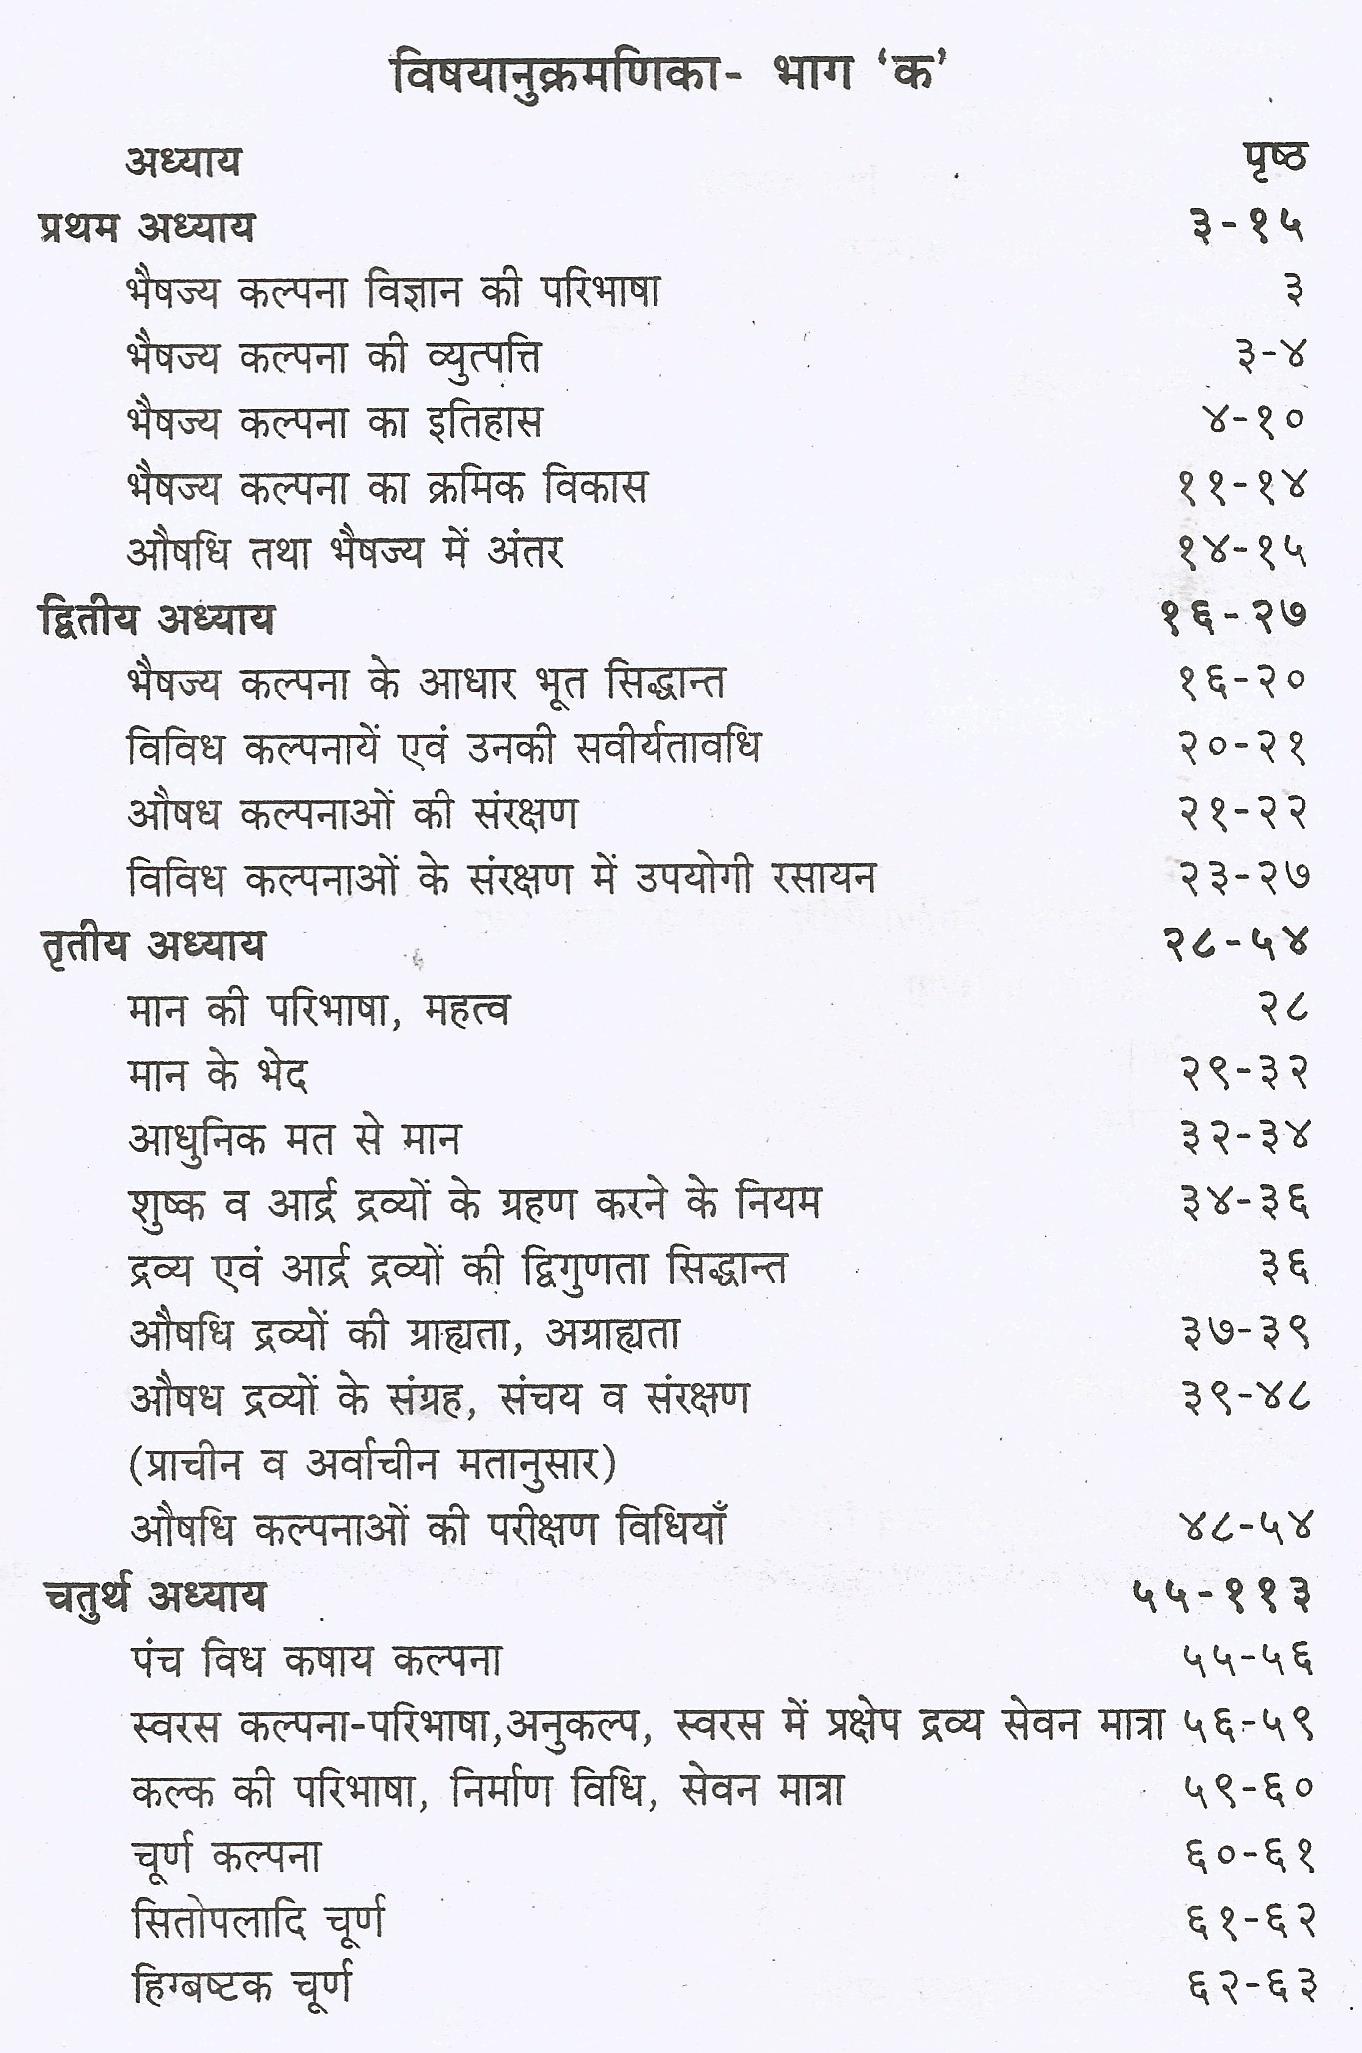 विषयानुक्रमणिका- भाग ‘क’
अध्याय पृष्ठ
प्रथम अध्याय ३-१५
भैषज्य कल्पना विज्ञान की परिभाषा ३
भैषज्य कल्पना की व्युत्पत्ति ३-४
भैषज्य कल्पना का इतिहास ४-१०
भैषज्य कल्पना का क्रमिक विकास ११-१४
औषधि तथा भैषज्य में अंतर १४-१५
द्वितीय अध्याय १६-२७
भैषज्य कल्पना के आधार भूत सिद्धान्त १६-२०
विविध कल्पनायें एवं उनकी सवीर्यतावधि २०-२१
औषध कल्पनाओं की संरक्षण २१-२२
विविध कल्पनाओं के संरक्षण में उपयोगी रसायन २३-२७
तृतीय अध्याय २८-५४
मान की परिभाषा, महत्व २८
मान के भेद २९-३२
आधुनिक मत से मान ३२-३४
शुष्क व आर्द्र द्रव्यों के ग्रहण करने के नियम ३४-३६
द्रव्य एवं आर्द्र द्रव्यों की द्विगुणता सिद्धान्त ३६
औषधि द्रव्यों की ग्राह्यता, अग्राह्यता ३७-३९
औषध द्रव्यों के संग्रह, संचय व संरक्षण ३९-४८
(प्राचीन व अर्वाचीन मतानुसार)
औषधि कल्पनाओं की परीक्षण विधियाँ ४८-५४
चतुर्थ अध्याय ५५-११३
पंच विध कषाय कल्पना ५५-५६
स्वरस कल्पना-परिभाषा,अनुकल्प, स्वरस में प्रक्षेप द्रव्य सेवन मात्रा ५६-५९
कल्क की परिभाषा, निर्माण विधि, सेवन मात्रा ५९-६०
चूर्ण कल्पना ६०-६१
सितोपलादि चूर्ण ६१-६२
हिग्बष्टक चूर्ण ६२-६३